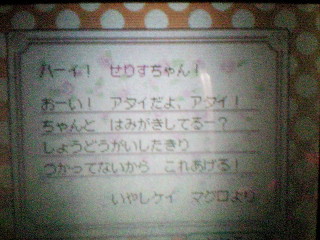 ハーイ！ せりすちゃん！
おーい！ アタイだよ、アタイ！
ちゃんと はみがきしてるー？
しょうどうがいしたきり
つかってないから これあげる！
いやしケイ マグロより